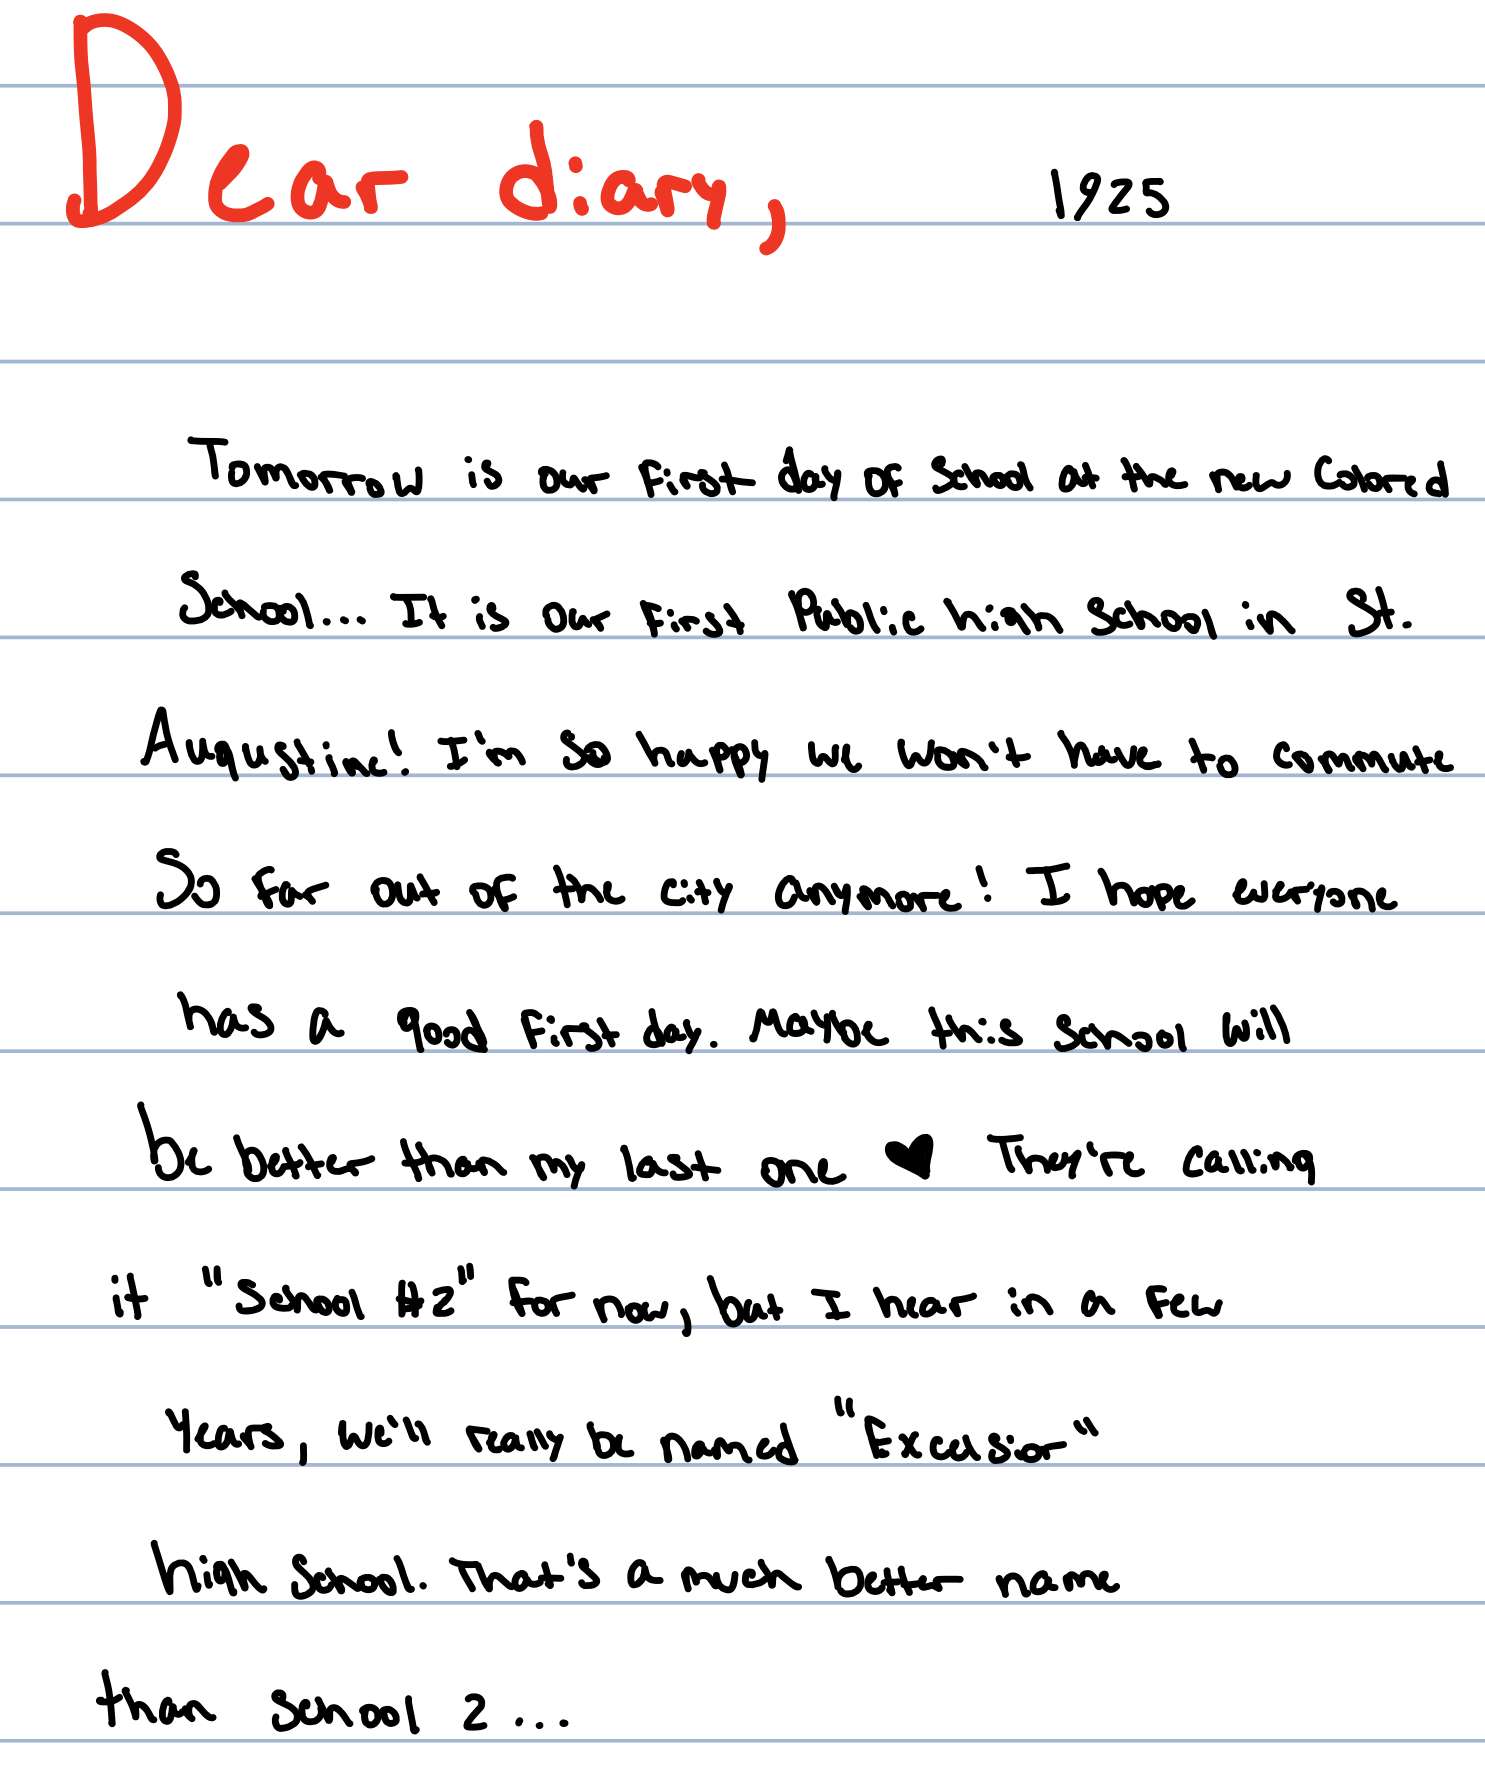 Dear diary, 1925
Tomorrow is our first day of School at the new Colored
School... It is our first Public high School in St.
Augustine! I'm so happy we won't have to commute
So far out of the city anymore! I hope everyone
has a good first day. Maybe this school will
be better than my last one ♥ They're calling
it "School #2" for now, but I hear in a few
years, we'll really be named "Excelsior"
high School. That's a much better name
than School 2...